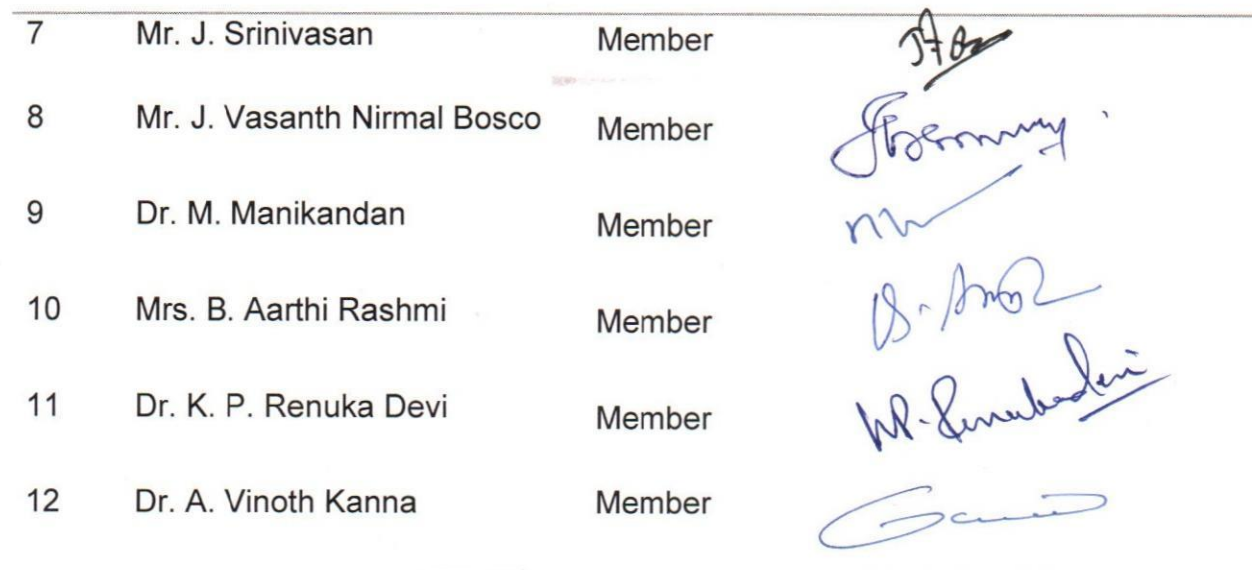 7 Mr. J. Srinivasan Member
8 Mr. J. Vasanth Nirmal Bosco Member
9 Dr. M. Manikandan Member
10 Mrs. B. Aarthi Rashmi Member
11 Dr. K. P. Renuka Devi Member K.P. Renukadevi
12 Dr. A. Vinoth Kanna Member